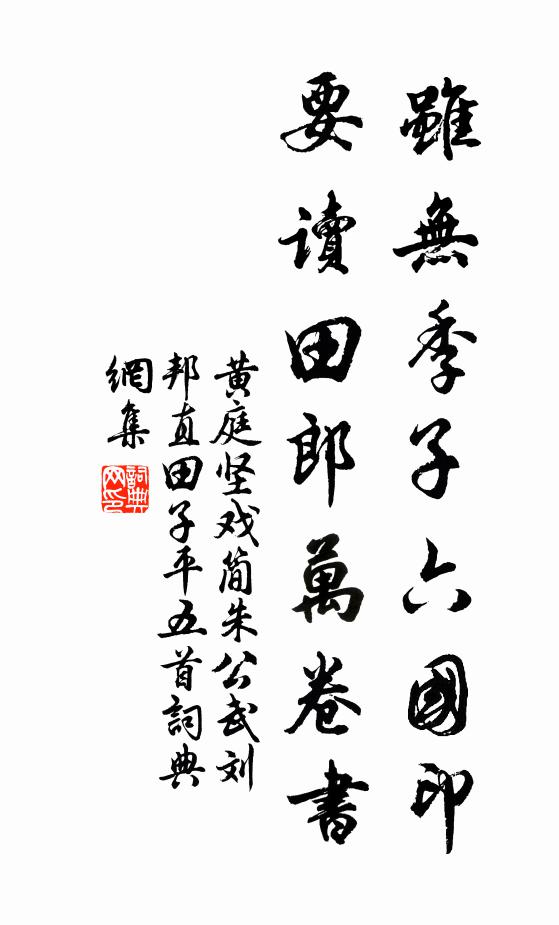 雖無季子六國印
要讀田郎萬卷書
黄庭坚戏简朱公武刘
邦直田子平五首詞典
網集
詞典
网印